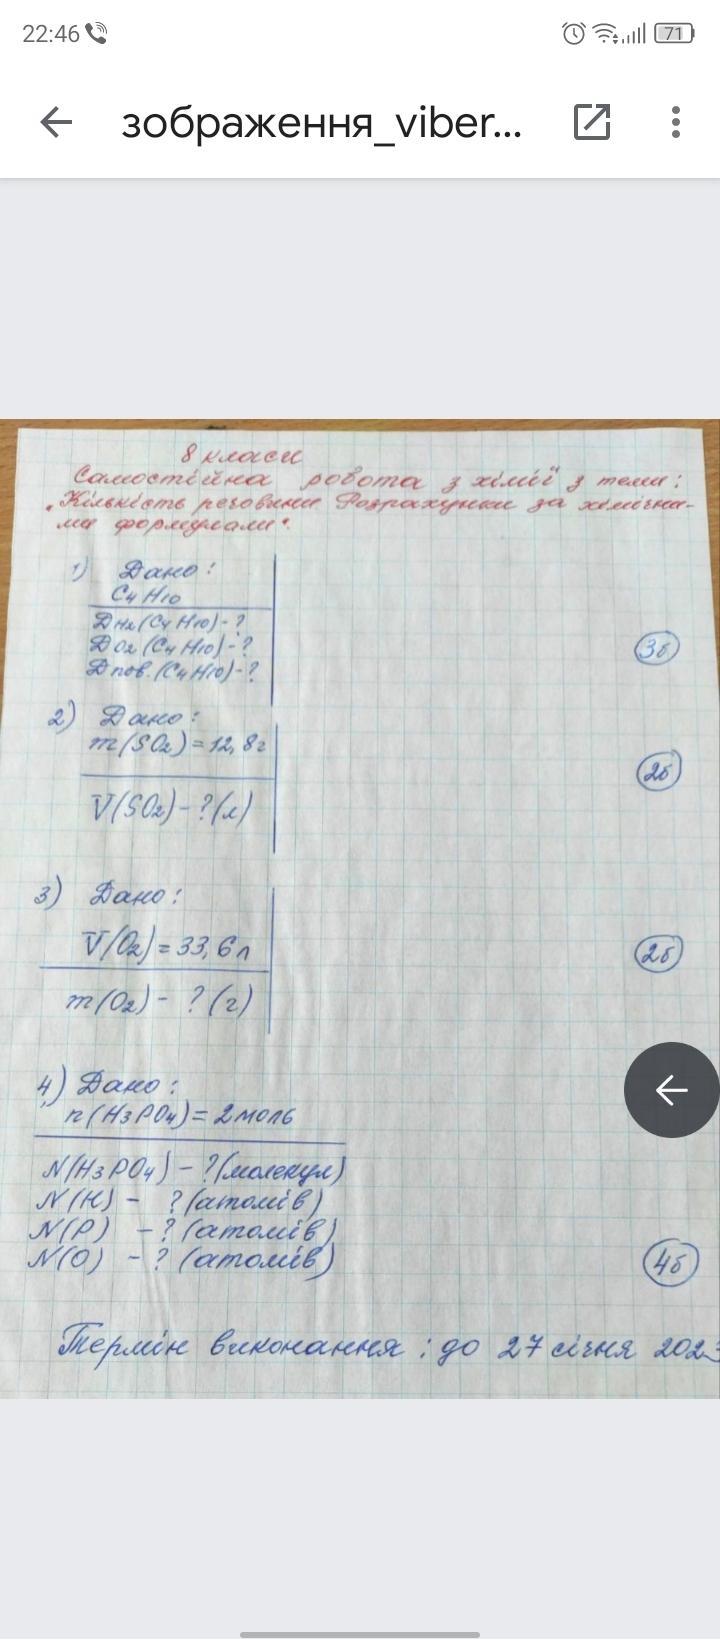 22:46
71
зображення_viber...
8 класи
Самостійна робота з хімії з теми:
„Кількість речовини Розрахунки за хімічни-
ми формулами".
1) Дано:
C4H10
DH2(C4H10)-?
DO2(C4H10)-?
Dпов.(C4H10)-?
3б
2) Дано:
m(SO2)=12,8г
2б
V(SO2)-?(л)
3) Дано:
V(O2)=33,6л
2б
m(O2)- ?(г)
4) Дано:
n(H3PO4)=2моль
N(H3PO4)-?(молекул)
N(H)- ?(атомів)
N(P) -?(атомів)
N(O) -?(атомів)
4б
Термін виконання: до 27 січня 2023